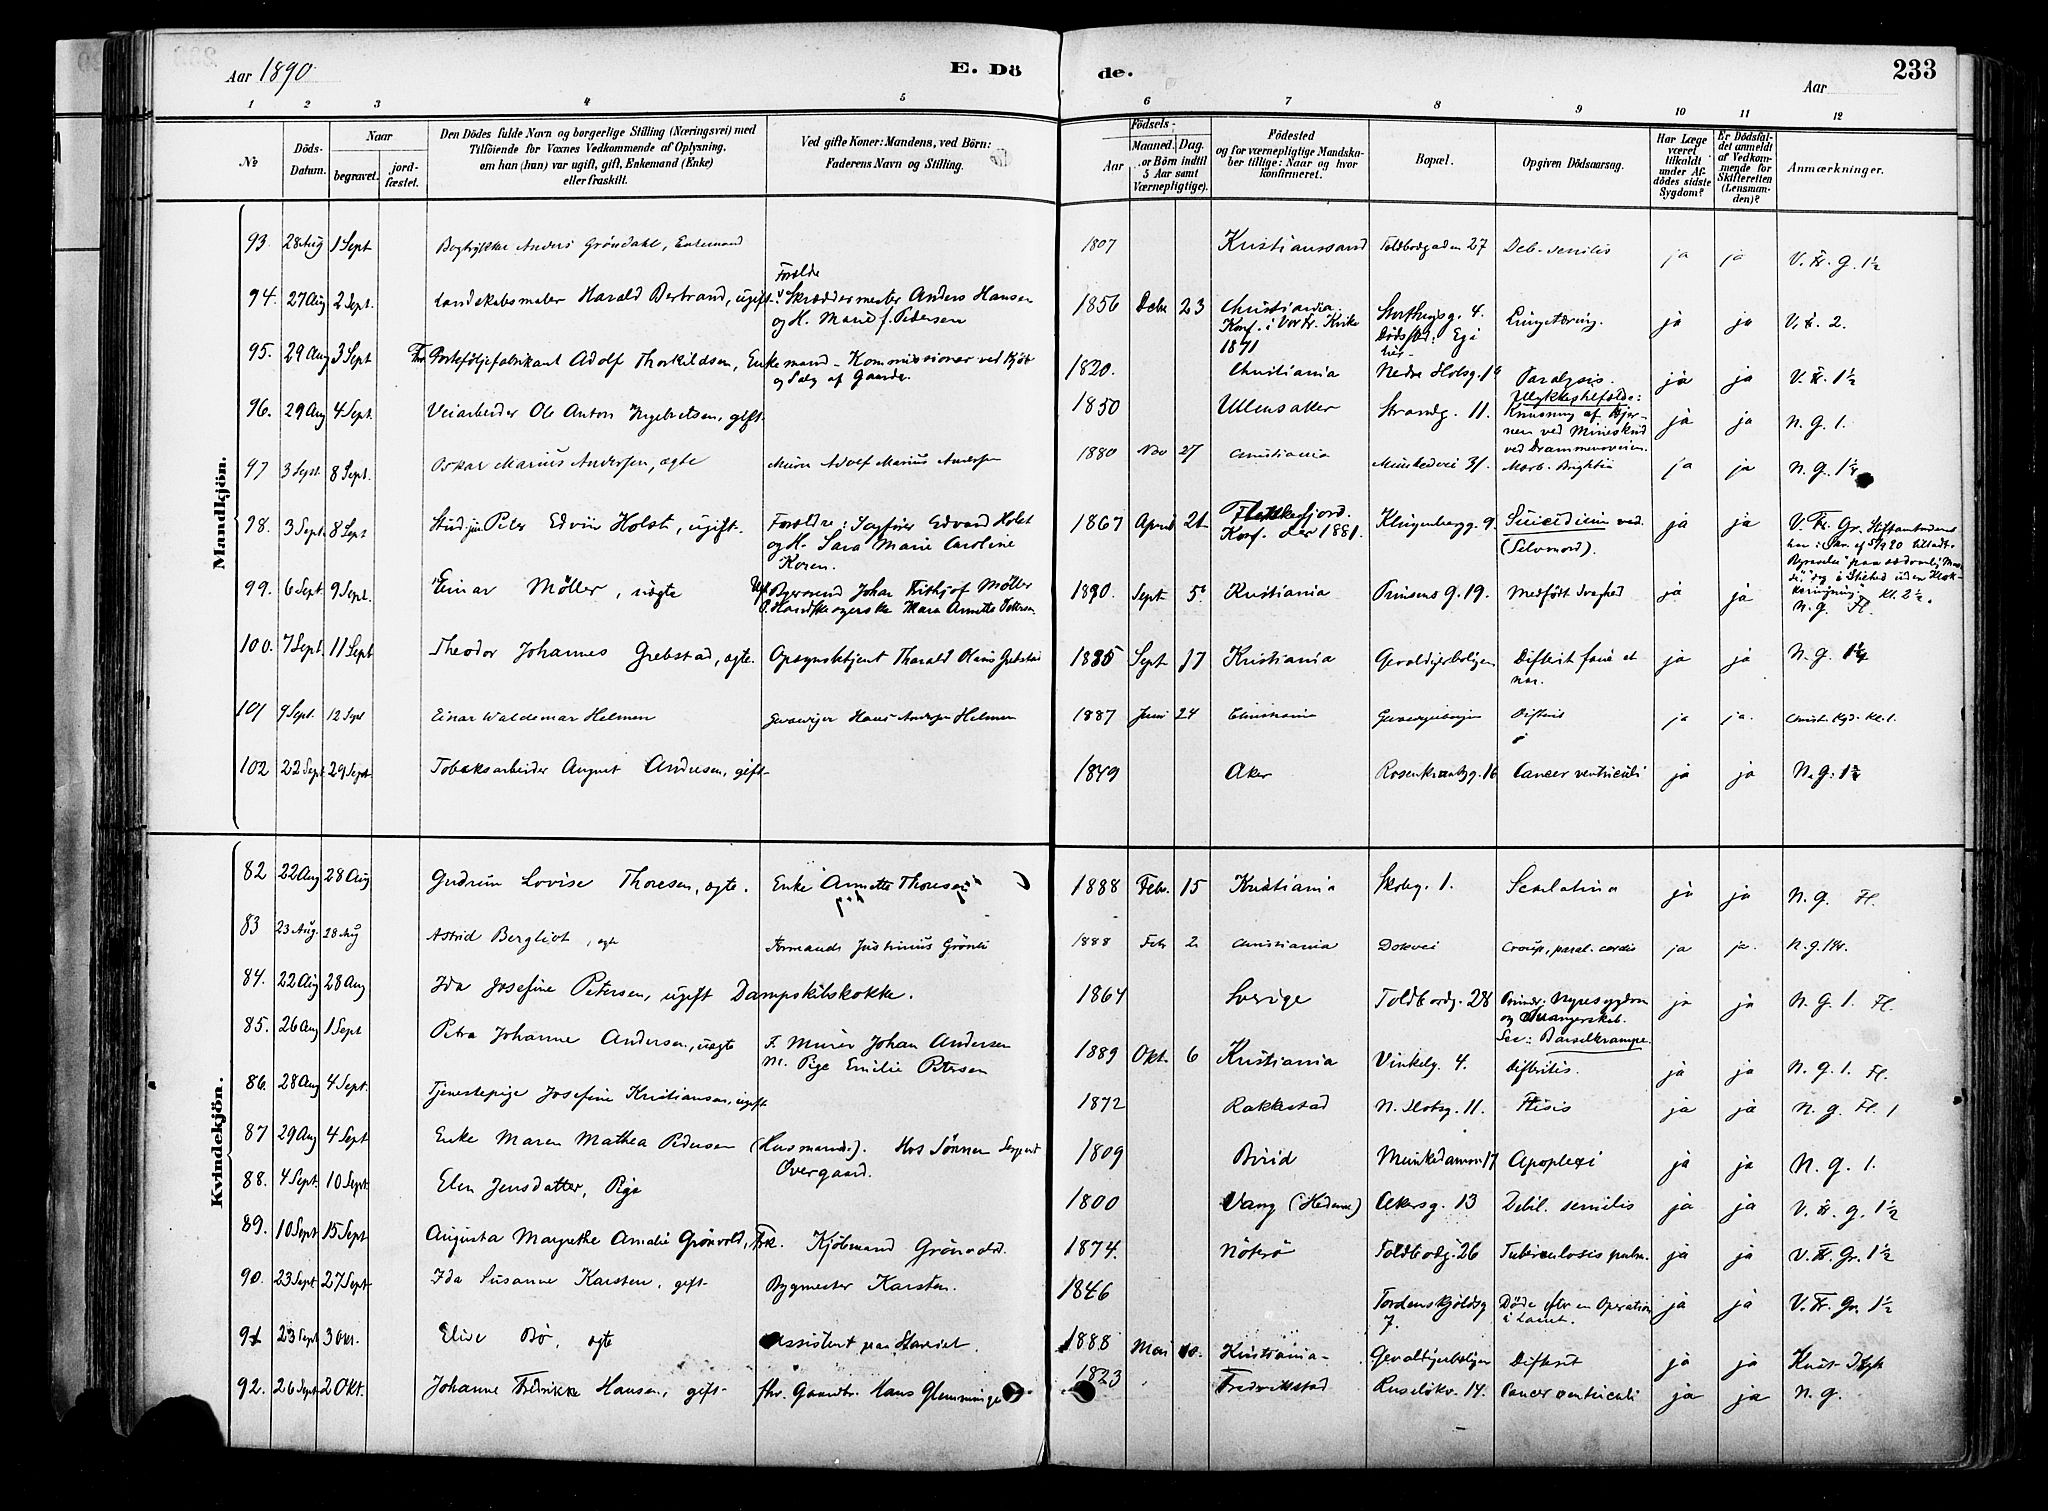 Aar 1890
E. Dö de.
Aar
233
1 2 3 4 5 6 7 8 9 10 11 12
№
Döds-Datum.
Naar
begravet.
jord-fæstet.
Den Dödes fulde Navn og borgerlige Stilling (Næringsvei) med
Tilföiende for Voxnes Vedkommende af Oplysning,
om han (hun) var ugift, gift, Enkemand (Enke)
eller fraskilt.
Ved gifte Koner: Mandens, ved Börn:
Faderens Navn og Stilling.
Födsels-
Aar
Maaned. Dag.
for Börn indtil
5 Aar samt
Værnepligtige).
Födested
og for værnepligtige Mandska-
ber tillige: Naar og hvor
konfirmeret.
Bopæl.
Opgiven Dödsaarsag.
Har Læge
været
tilkaldt
under Af-
dödes sidste
Sygdom?
Er Dödsfal-
det anmeldt
af Vedkom-
mende for
Skifteretten
(Lensman-
den)?
Anmærkninger.
Mandkjön.
93. 28 Aug 1 Sept Anders Gröndahl, Enkemand 1807 Kristianssand Toldbodgaden 27 Deb. senilis ja ja V. Fr. G. 1½
94. 27 Aug 2 Sept. Landskabsmaler Harald Bertrand, ugift. Forældre: Skræddermester Anders Hansen
og H. Marie f. Pedersen 1856 Debr 23 Christiania. Konf. i Vor Fr. Kirke 1871 Storthingsg. 4. Lungetæring. ja ja V. Fr. 2.
95. 29 Aug 3 Sept Porteföljefabrikant Adolf Thorkildsen, Enkemand - Kommissionær ved Kjöb
og Salg af Gaarde. 1820. Christiania Nedre Slotsg. Paralysis. ja ja V. Fr. 1½
96. 29 Aug 4 Sept. Veiarbeider Ole Anton Ingebretsen, gift 1850 Ullensaker Strandg. 11. Ulykkestilfælde:
Knusning af Hjer-
nen ved Mineskud
ved Drammensveien. ja ja N. G. 1.
97 3 Sept. 8 Sept. Oskar Marius Andersen, ægte Murer Adolf Marius Andersen 1880 Nov 27 Christiania Munkedvei 31. Morb. Brightii ja ja N. G. 1½
98. 3 Sept. 8 Sept Stud. jur. Peter Edvin Holst, ugift. Forældre: Sagförer Edvard Holst
og H. Sara Marie Caroline
Koren. 1867 April 21 Flekkefjord.
Konf. der 1881. Klingenbergg. 9. Suicidium ved.
(Selvmord). ja ja V. Fr. Gr.
Kl. 2½.
99. 6 Sept 9 Sept. Einar Möller, uægte Johan Fridtjof Möller 1890. Sept 5 Kristiania Prinsens G. 19. Medfödt svaghed ja ja N. G. Fl.
100. 7 Sept. 11 Sept Theodor Johannes Grebstad, ægte. Opsynsbetjent Tharald Olaus Grebstad 1885 Sept 17 Kristiania Gevaldigerboligen Difterit ja ja N. G.
101 9 Sept. 12 Sept Einar Waldemar Helmen Hans Andersen Helmen 1887 Juni 24 Christiania Difterit ja ja.
102 22 Sept 29 Sept Tobaksarbeider August Andresen, gift 1849 Aker Rosenkrantzg. 16 Cancer ventriculi ja ja N. G. 1½
Kvindekjön.
82 22 Aug 28 Aug Gudrun Lovise Thoresen, ægte. Enke Annette Thoresen 1888 Febr. 15 Kristiania Skolég. 1. Scarlatina ja ja N. G. Fl.
83 23 Aug. 28 Aug Astrid Bergliot, ægte Formand Justinius Grönli 1888 Feb 2 Christiania Dokvei Croup, paral. cordis ja ja. N. G.
84. 22 Aug 28 Aug Ida Josefine Petersen, ugift Dampskibskokke. 1864 Sverige Toldbodg. 28 Primær: Nyresygdom
og Svangerskab.
Sec: Barselkrampe. ja ja N. G. 1. Fl.
85. 26 Aug 1 Sept Petra Johanne Andersen, uægte F. Murer Johan Andersen
M. Pige Emilie Petersen 1889 Okt. 6 Kristiania Vinkelg. 4. Difteritis. ja ja N. G. 1. Fl.
86. 28 Aug 4 Sept. Tjenestepige Josefine Kristiansen, ugift 1872 Rakkestad N. Slotsg. 11. Ftisis ja ja N. G. Fl. 1
87 29 Aug 4 Sept. Enke Maren Mathea Pedersen (Husmands). Hos Sönnen Sergeant
Overgaard. 1809 Birid Munkedamsv. 17 Apoplexi ja ja N. G. 1.
88. 4 Sept. 10 Sept. Elen Jensdatter, Pige 1800 Vang (Hedem.) Akersg. 13 Debil. senilis ja ja V. Fr. G. 1½
89. 10 Sept 15 Sept Augusta Margrethe Amalie Grönvold, Frk. Kjöbmand Grönvold. 1874. Nöterö Toldbodg. 26 Tuberculosis pulm. ja ja V. Fr. Gr. 1½
90. 23 Sept 27 Sept Ida Susanne Karsten, gift Bygmester Karsten. 1846 Tordenskjoldsg
7. Döde efter en Operation ja ja V. Fr. Gr. 1½
91 23 Sept 3 Okt. Elise Bö, ægte Assistent paa Slaveriet. 1888 Mai 10. Kristiania Gevaldigerboligen Difterit ja ja
92. 26 Sept 2 Okt. Johanne Fredrikke Hansen, gift fhv. Gaardbr. Hans Glemminge 1823 Fredrikstad Ruselökv. 14. Cancer ventriculi ja ja N. G.